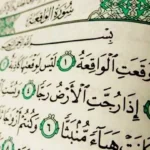 سُورَةُ الوَاقِعَةِ
بِسْمِ
وَقَعَتِ الْوَاقِعَةُ ١ لَيْسَ لِوَقْعَ
إِذَا رُجَّتِ الْأَرْضُ رَجًّا
هَبَاءً مُّنۢبَثًّا ٦ وَكُنتُمْ أَزْ